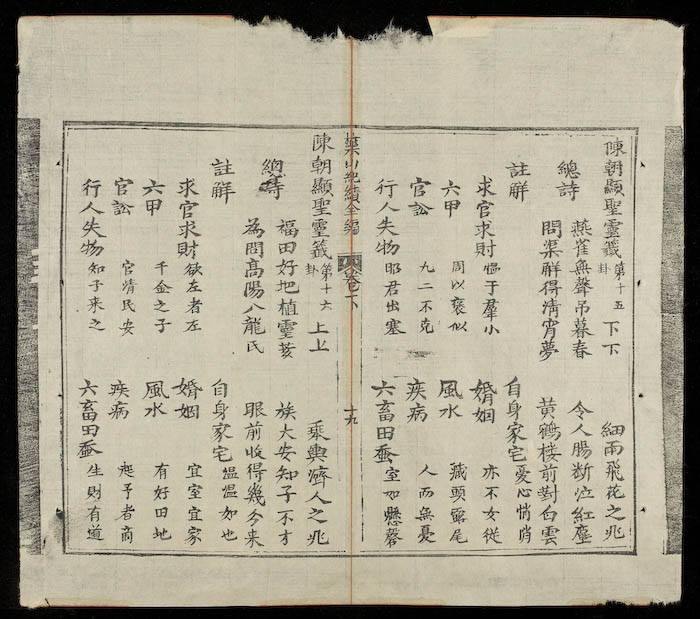 陳朝顯聖靈籤 第十五卦 下下 細雨飛花之兆
總詩
燕雀無聲吊暮春 令人腸斷泣紅塵
問渠解得清宵夢 黃鶴楼前對白雲
註解 自身家宅 憂心悄悄
求官求財 慍于羣小 婚姻 亦不女從
六甲 周以褒似 風水 藏頭露尾
官訟 九二不克 疾病 人而無憂
行人失物 昭君出塞 六畜田蚕 室如懸磬
藥山紀績全編 卷下 十九
陳朝顯聖靈籤 第十六卦 上上 乘輿濟人之兆
總詩
福田好地植靈荄 族大安知子不才
為問高陽八龍氏 眼前收得幾今来
註解 自身家宅 温温如也
求官求財 欲左者左 婚姻 宜室宜家
六甲 千金之子 風水 有好田地
官訟 官清民安 疾病 起予者商
行人失物 知子来之 六畜田蚕 生則有道